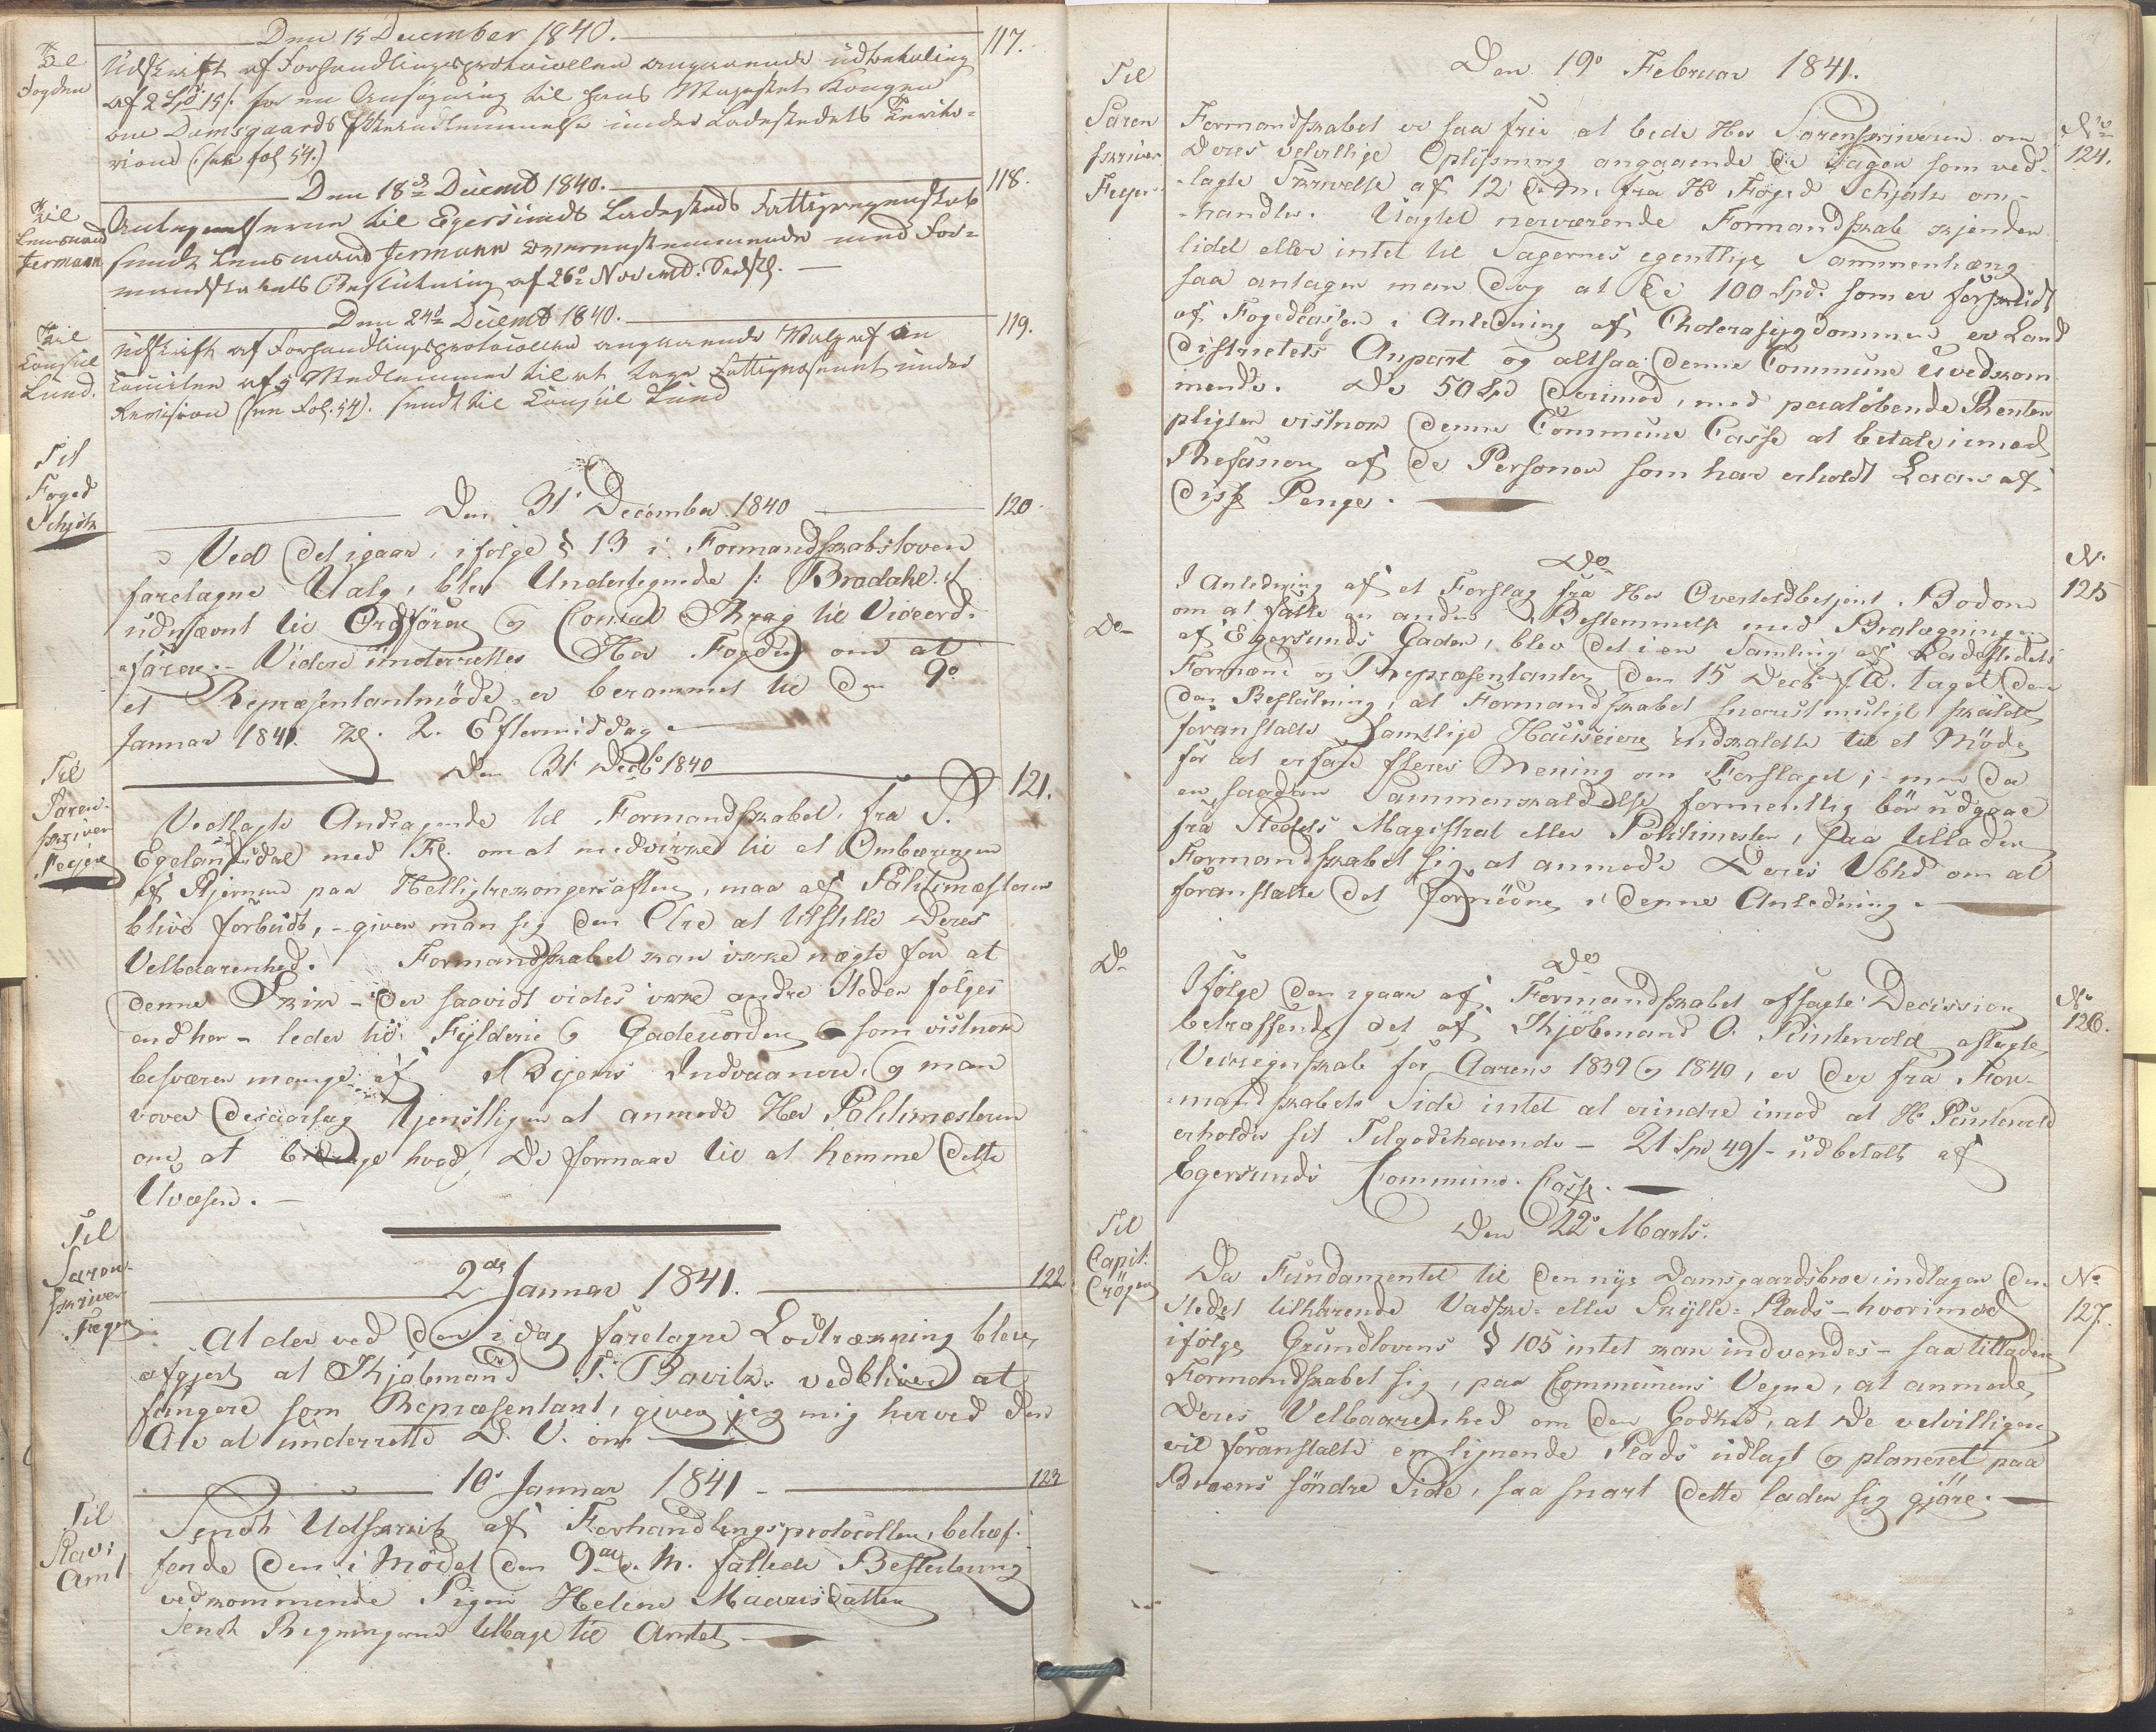 Den 15 December 1840.
117.
Til
Fogden
Udskrift af Forhandlingsprotocollen angaaende udbetaling
af 2 Spd 15 s. for en Ansøgning til Hans Majestæt Kongen
om Damsgaards Indlemmelse under Ladestedets Territo-
rium (see fol 54.)
Den 18de Decemb 1840.
118.
Til
Lensmand
Jermann
Antegnelserne til Egersunds Ladesteds Fattigregnskab
sendt Lensmand Jermann overeensstemmende med For-
mandskabets Beslutning af 26o Novemb. Sidstl.
Den 24de Decemb 1840.
119.
Til
Consul
Lund.
Udskrift af Forhandlingsprotocollen angaaende Valg af en
Comitee af 5 Medlemmer til at tage Fattigvæsenet under
Revision (see Fol. 54). sendt til Consul Lund
Til
Foged
Schjøtz
Den 31' December 1840
120.
Ved det igaar, ifølge § 13 i Formandskabsloven
foretagne Valg, blev Undertegnede /: Bradahl :/
udnævnt til Ordfører og Consul Krag til Viceord-
fører. Videre underrettes Her Fogden om at
et Repræsentantmøde er berammet til den 9o
Januar 1841. Kl. 2. Eftermiddag.
Den 31 Decb 1840
121.
Til
Soren-
skriver
Feyer
Vedlagte Andragende til Formandskabet, fra S.
Egelandsdal med Fl. om at medvirke til at Ombæringen
af Stjernen paa Helligtrekongersaften, maa af Politimesteren
blive forbudt, - giver man sig den Ære at tilstille Deres
Velbaarenhed. Formandskabet kan ikke nægte for at
denne Skik - der saavidt vides ikke andre Steder følges
end her - leder til Fylderie og Gadeuorden som vistnok
besværer mange af Byens Indvaanere, og man
vover desaarsag tjenstligen at anmode Her Politimesteren
om at bidrage hvad De formaar til at hemme dette
Uvæsen.
Til
Soren-
skriver
Feyer
2de Januar 1841.
122
At der ved den i dag foretagne Lodtrækning blev
afgjort at Kjøbmand T. Bavitz vedbliver at
fungere som Repræsentant, giver jeg mig herved den
Ære at underrette D. V. om
10' Januar 1841
123
Til
Stav:
Amt
Sendt Udskrift af Forhandlingsprotocollen, betræf-
fende den i Mødet den 9de d. M. fattede Beslutning
vedkommende Pigen Helene Mauritsdatter
sendt Regningerne tilbage til Amtet
Den 19o Februar 1841.
Til
Soren
skriver
Feyer
No
124.
Formandskabet er saa frie at bede Her Sorenskriveren om
Deres velvillige Oplysning angaaende de Sager som ved-
lagte Skrivelse af 12' d. M. fra Hr Foged Schjøtz om-
handler. Uagtet nærværende Formandskab kjender
lidet eller intet til Sagernes egentlige Sammenhæng
saa antager man dog at de 100 Spd. som er forskudt
af Fogedcassen i Anledning af Cholerasygdommen er Land
districtets Anpart og altsaa denne Commune uvedkom-
mende. De 50 Spd derimod, med paaløbende Renter
pligter vistnok denne Commune Casse at betale imod
Refusion af de Personer som har erholdt Laan af
disse Penge.
Do
No
125
Do
I Anledning af et Forslag fra Her Overtoldbetjent Bodom
om at fatte en anden Bestemmelse med Brolægningen
af Egersunds Gader, blev det i en Samling af Ladestedets
Formænd og Repræsentanter den 15 Decb f. A. taget den
den Beslutning, at Formandskabet snarest muligt skulde
foranstalte samtlige Huuseiere indkaldte til et Møde
for at erfare fleres Mening om Forslaget; - men da
en saadan Sammenkaldelse formentlig bør udgaae
fra Stedets Magistrat eller Politimester, saa tillader
Formandskabet sig at anmode Deres Vbhd om at
foranstalte det fornødne i denne Anledning.
Do
Do
No
126.
Ifølge den igaar af Formandskabet afsagte Decission
betræffende det af Kjøbmand O. Puntervold aflagte
Veiregnskab for Aarene 1839 og 1840, er der fra For-
mandskabets Side intet at erindre imod at Hr Puntervold
erholder sit Tilgodehavende - 21 Spd 49 s - udbetalt af
Egersunds Commune Casse.
Til
Capit:
Crøger
Den 22' Marts.
No
127.
Da Fundamentet til den nye Damsgaardsbroe indtager den
Stedet tilhørende Vadske- eller Skylle-Plads - hvorimod
ifølge Grundlovens § 105 intet kan indvendes - saa tillader
Formandskabet sig, paa Communens Vegne, at anmode
Deres Velbaarenhed om den Godhed, at De velvilligen
vil foranstalte en lignende Plads udlagt og planeret paa
Broens søndre Side, saa snart dette lader sig gjøre.